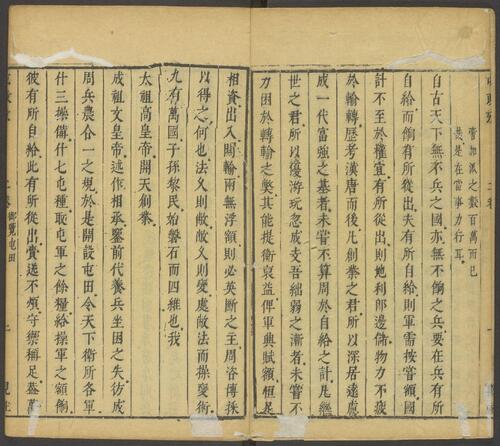 當加派之數百萬而已
悉是在當事力行耳
自古天下無不兵之國亦無不餉之兵要在兵有所
自給而餉有所從出夫有所自給則軍需按嘗額國
計不至於權宜有所從出則地利郎邊儲物力不疲
於輸轉歷考漢唐而後凡創業之君所以深居遠慮
成一代富強之基者未嘗不算周於自給之計凡繼
世之君所以優游玩忽成支吾絀弱之漸者未嘗不
刀困於轉輸之獘其能提衡裒益俾軍興賦額恒足
相資出入間輸兩無浮額則必英斷之主周咨傳採
以得之何也法久則敝敝久則變處敝法而操變術
九有萬國子孫黎民始磐石而四維也我
太祖高皇帝開天創業
成祖文皇帝述作相承鑒前代養兵坐困之失彷成
周兵農合一之規於是開設屯田令天下衛所各軍
什三操備什七屯種取屯軍之餘糧給操軍之額餉
彼有所自給此有所從出賫送不煩守禦稱足蓋萬
二卷 衛鹽屯田